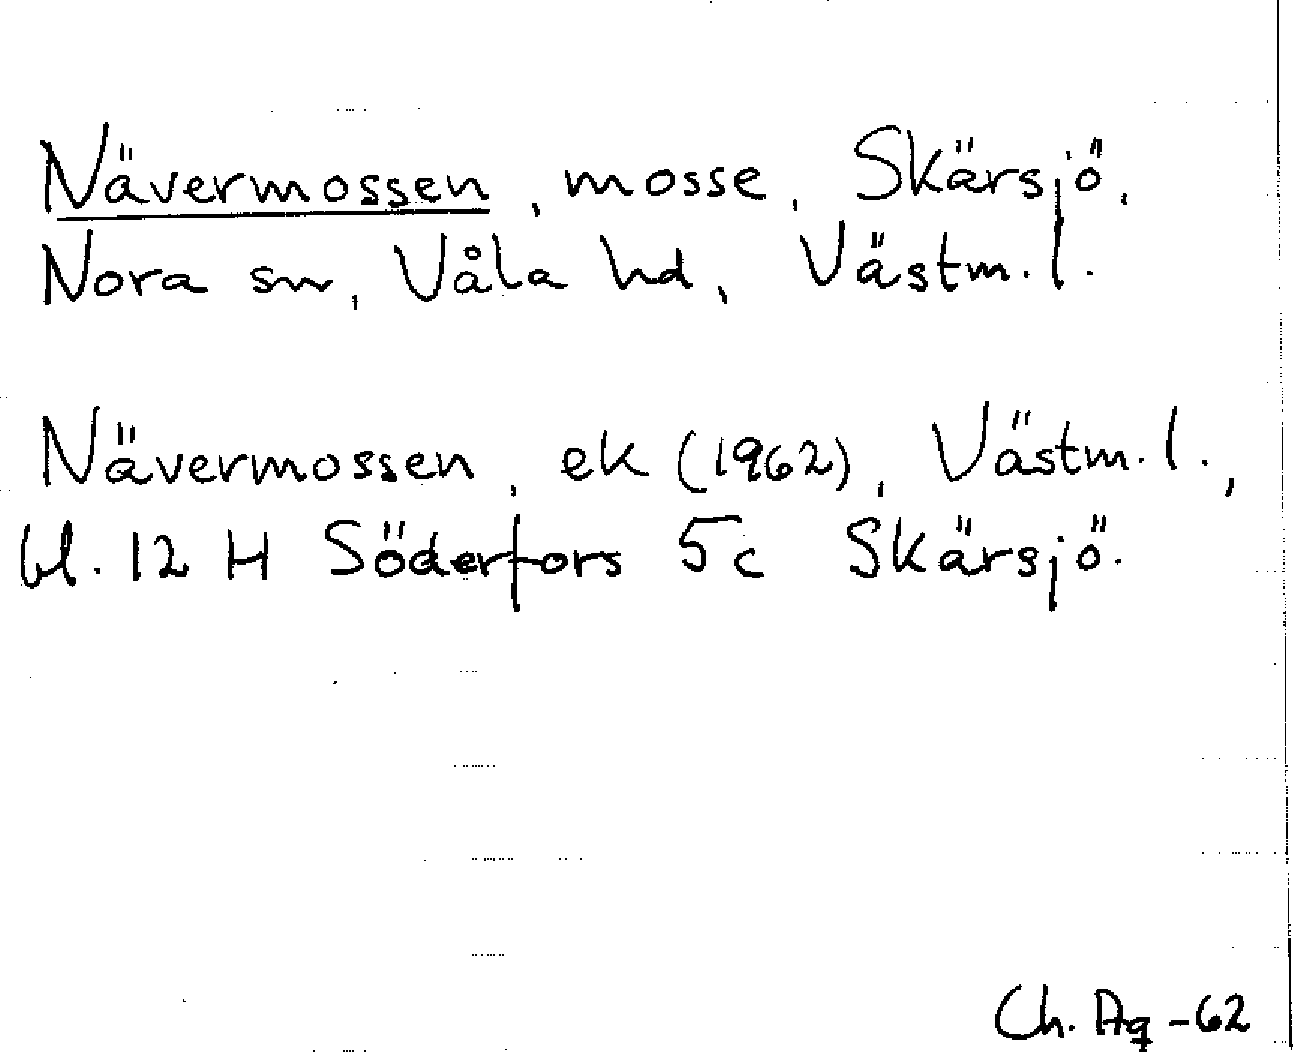 Nävermossen, mosse, Skärsjö,
Nora sn, Våla hd, Västm. l.
Nävermossen, ek (1962), Västm. l.,
bl. 12 H Söderfors 5c Skärsjö.
Ch. Ag -62